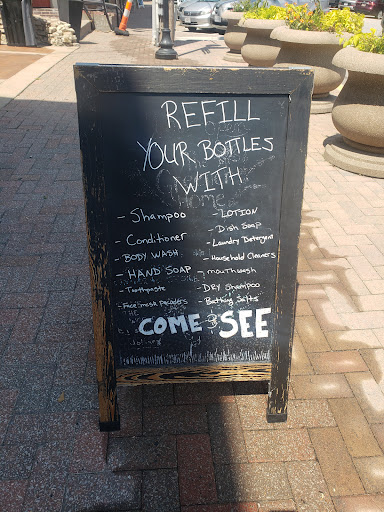 REFILL
YOUR BOTTLES
WITH
Home
- Shampoo
- Conditioner
- BODY WASH
- HAND SOAP
- Toothpaste
- Face mask powders
- LOTION
- Dish Soap
- Laundry Detergent
- Household Cleaners
- mouthwash
- DRY Shampoo
- Bathing Salts
THE
COME & SEE